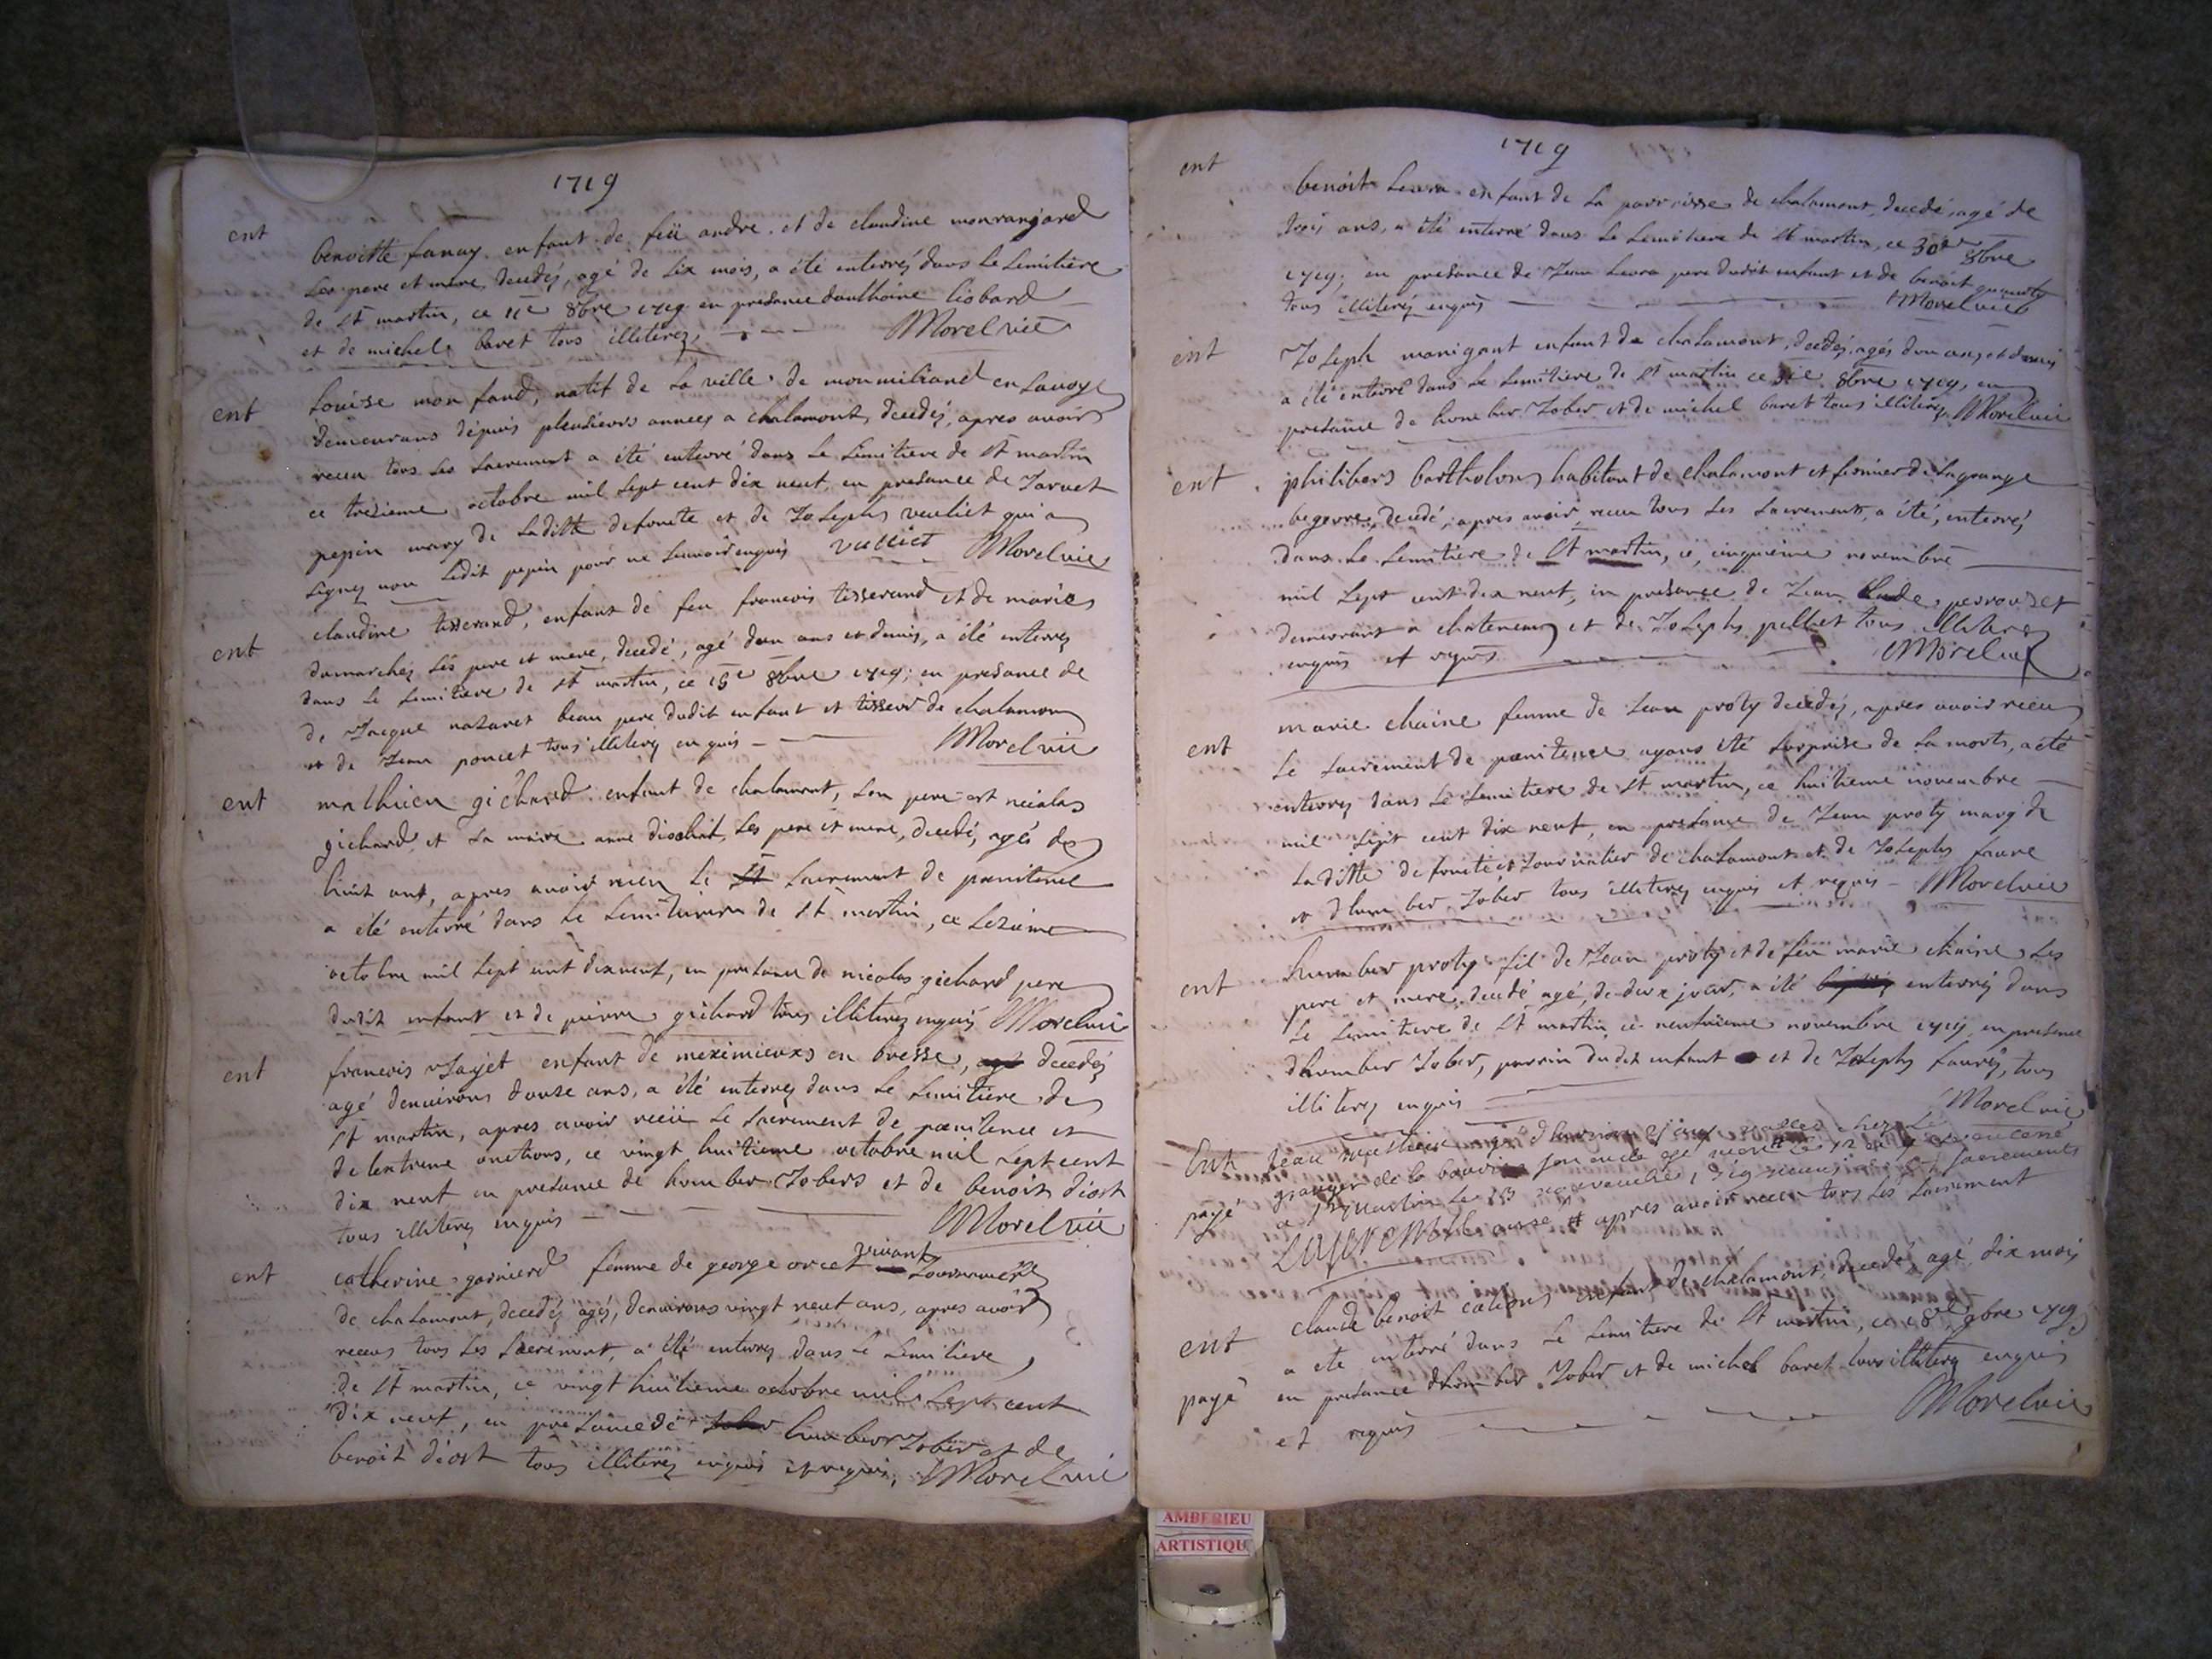 1719
ent
benoitte fanay enfant de feü andre et de claudine monrangard
ses pere et mere, decedé, agé de six mois, a été enterrés dans le semitière
de st martin, ce 11e 8bre 1719 en presance danthoine liobard
et de michel baret tous illiterez Morel vic
ent
Louise mon fand, natif de la ville de monmiliand en savoye
demeurans dépuis plusieurs annees a chalamont, decedés, apres avoir
receu tous les sacrement a été enterré dans le semitiere de st martin
ce tresieme octobre mil sept cent dix neuf, en presance de Jarvet
pepin mary de laditte defuncte et de Joseph veuliet qui a
signez non ledit pepin pour ne scavoir enquis vulliet Morel vic
ent
claudine tisserand, enfant de feu francois tisserand et de marie
dumarchez ses pere et mere, decedé, agé dun ans et demis, a été enterrez
dans le semitiere de st martin, ce 15e 8bre 1719; en presance de
de Jacque nazaret beau pere dudit enfant et tisseur de chalamon
et de Jean poncet tous illiterez enquis Morel vic
ent
mathieu gichard enfant de chalamont, son pere est nicolas
gichard, et sa maire anne diochat, ses pere et mere, decedé, agés de
huit ant, apres avoir receu le st sacrement de pœnitence
a été enterré dans le semitiere de st martin, ce sezieme
octobre mil sept cent dixneuf, en presance de nicolas gichard pere
dudit enfant et de pierre gichard tous illiterez enquis Morel vic
ent
francois Jayet enfant de meximieux en bresse, agé decedés
agé denvirons douse ans, a été enterrez dans le semitiere de
st martin, apres avoir receü le sacrement de pœnitence et
de lextreme onctions, ce vingt huitieme octobre mil sept cent
dix neuf en presance de humber Jobers et de benoit diost
tous illiterez enquis Morel vic
ent
catherine garnierd femme de george orcet vivant
de chalamont, decedés agés, denvirons vingt neuf ans, apres avoir
receus tous les sacrement, a été enterrez dans le semitiere
de st martin, ce vingt huitieme octobre mil sept cent
dix neuf, en presance de humber Jober et de
benoit diost tous illiterez enquis et requis, Morel vic
1719
ent
benoit Leura enfant de la parroisse de chalamont, decedé, agé de
trois ans, a été enterré dans le semitiere de st martin, ce 30e 8bre
1719, en presance de Jean Leura pere dudit enfant et de benoit
tous illiterés enquis Morel vic
ent
Joseph manigant enfant de chalamont, decedés, agés dun ans, et demi
a été enterré dans le semitiere de st martin ce 31e 8bre 1719, en
presance de humber Jober et de michel baret tous illiterez Morel vic
ent
philibers bartholons habitant de chalamont et fermier de lagrange
begorre, decedé, apres avoir receu tous les sacrements, a été, enterrés
dans le semitiere de st martin, ce, cinquieme novembre
mil sept cent dix neuf, en presance de Jean Claude perrouset
demeurant a chateneay et de Joseph pelliet tous illiterez
enquis et requis Morel vic
ent
marie chaine femme de Jean proty decedés, apres avoir receu
le sacrement de pœnitence ayans été surprise de la morts, a été
enterrez dans le semitiere de st martin, ce huitieme novembre
mil sept cent dix neuf, en presance de Jean proty mary de
laditte defuncte et Journalier de chalamont et de Joseph faure
et dhumber Jober tous illiterez enquis et requis Morel vic
ent
humber proty fil de Jean proty et de feu marie chaine ses
pere et mere, decedé agé, de deux jour, a été enterrés dans
le semitiere de st martin ce neufvieme novembre 1719 en presence
dhumber Jober, parrin dudit enfant et de Joseph faures, tous
illiterez enquis Morel vic
Ent
payé
granger de la son oncle agé
a st martin le 13
curé apres avoir receu tous les sacrement
ent
payé
claude benoit enfant de chalamont, decedé, agé dix mois
a ete enterré dans le semitiere de st martin, ce 18e 9bre 1719
en presance dhumber Jober et de michel baret tous illiterez enquis
et requis Morel vic
AMBERIEU
ARTISTIQU